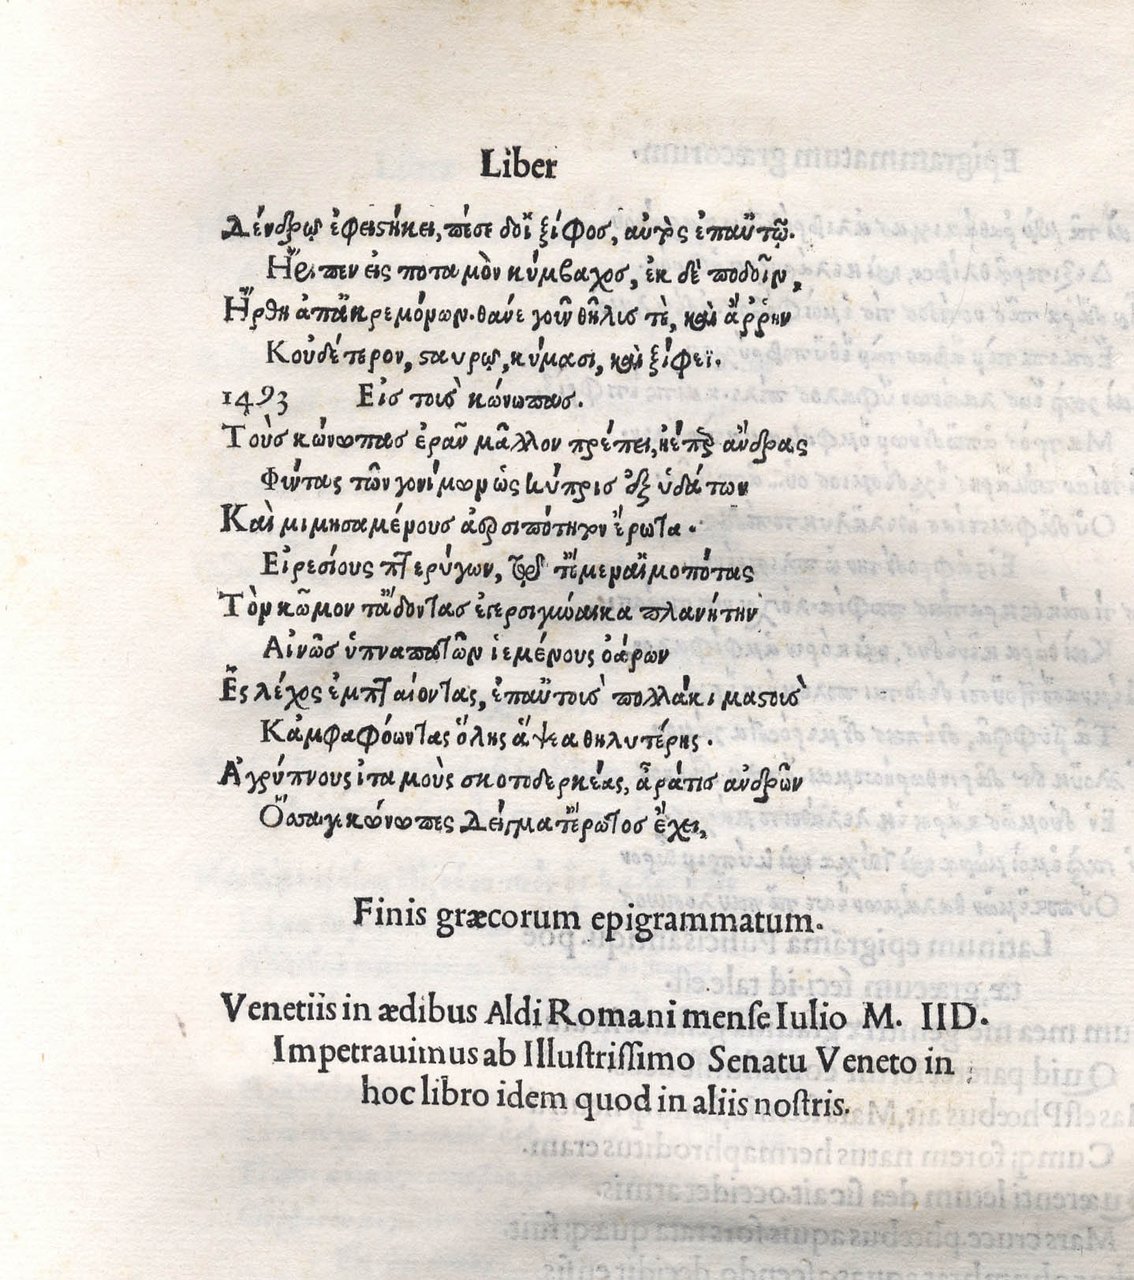 Liber
Δένδρῳ ἐφειστήκει, πέσε δοἷ ξίφος, αὐτὸς ἐπαὐτῷ.
Ἤριπεν εἰς ποταμὸν κύμβαχος, ἐκ δὲ ποδοῖν,
Ἤρθη ἀπἀκρεμόνων. θάνε γοῦν θῆλις τὲ, καὶ ἄῤῥην
Κοὐδέτερον, σταυρῷ, κύμασι, καὶ ξίφεϊ.
1493 Εἰς τοὺς κώνωπας.
Τοὺς κώνωπας ἐρᾶν μᾶλλον πρέπει, ἠέπερ ἄνδρας
Φύντας τῶν γονίμων ὡς κύπρις ἐξ ὑδάτων
Καὶ μιμησαμένους ἔρωτα.
Εἰρεσίους πτερύγων,
Τὸν κῶμον τἄδοντας πλανήτην
Αἰνῶς ὑπναπατῶν ἱεμένους ὀάρων
Ἐς λέχος ἐμπταίοντας, ἐπαὐτοῖς πολλάκι μαστοῖς
Κἀμφαφόωντας ὅλης ἅψεα θηλυτέρης.
Ἀγρύπνους ἰταμοὺς σκοτοδερκέας, ἆρά τις ἀνδρῶν
κώνωπες δεῖγματἔρωτος ἔχει,
Finis græcorum epigrammatum.
Venetiis in ædibus Aldi Romani mense Iulio M. IID.
Impetrauimus ab Illustrissimo Senatu Veneto in
hoc libro idem quod in aliis nostris.